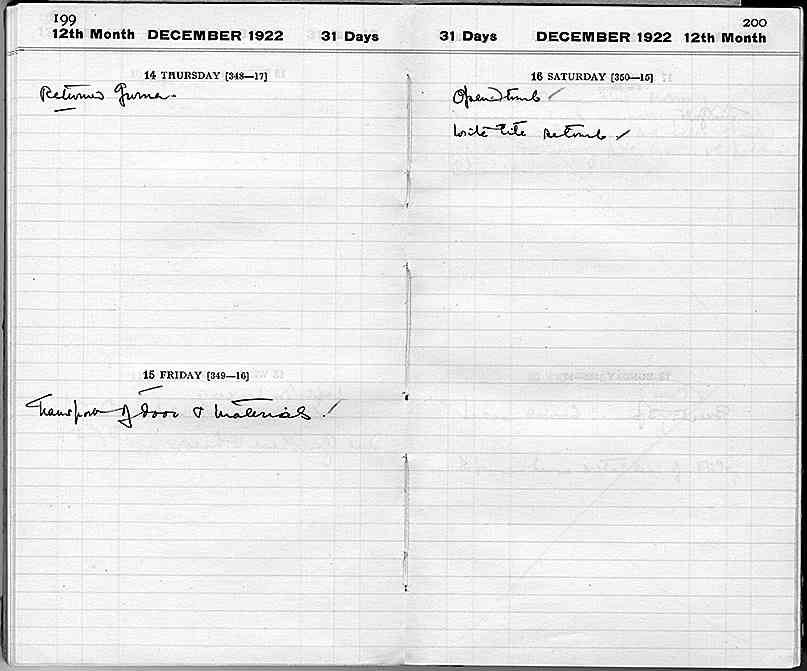 199
12th Month DECEMBER 1922 31 Days
14 THURSDAY [348—17]
Returned Gurna.
15 FRIDAY [349—16]
Transport of door & materials. /
200
31 Days DECEMBER 1922 12th Month
16 SATURDAY [350—15]
Opened tomb /
Write Lite re tomb /